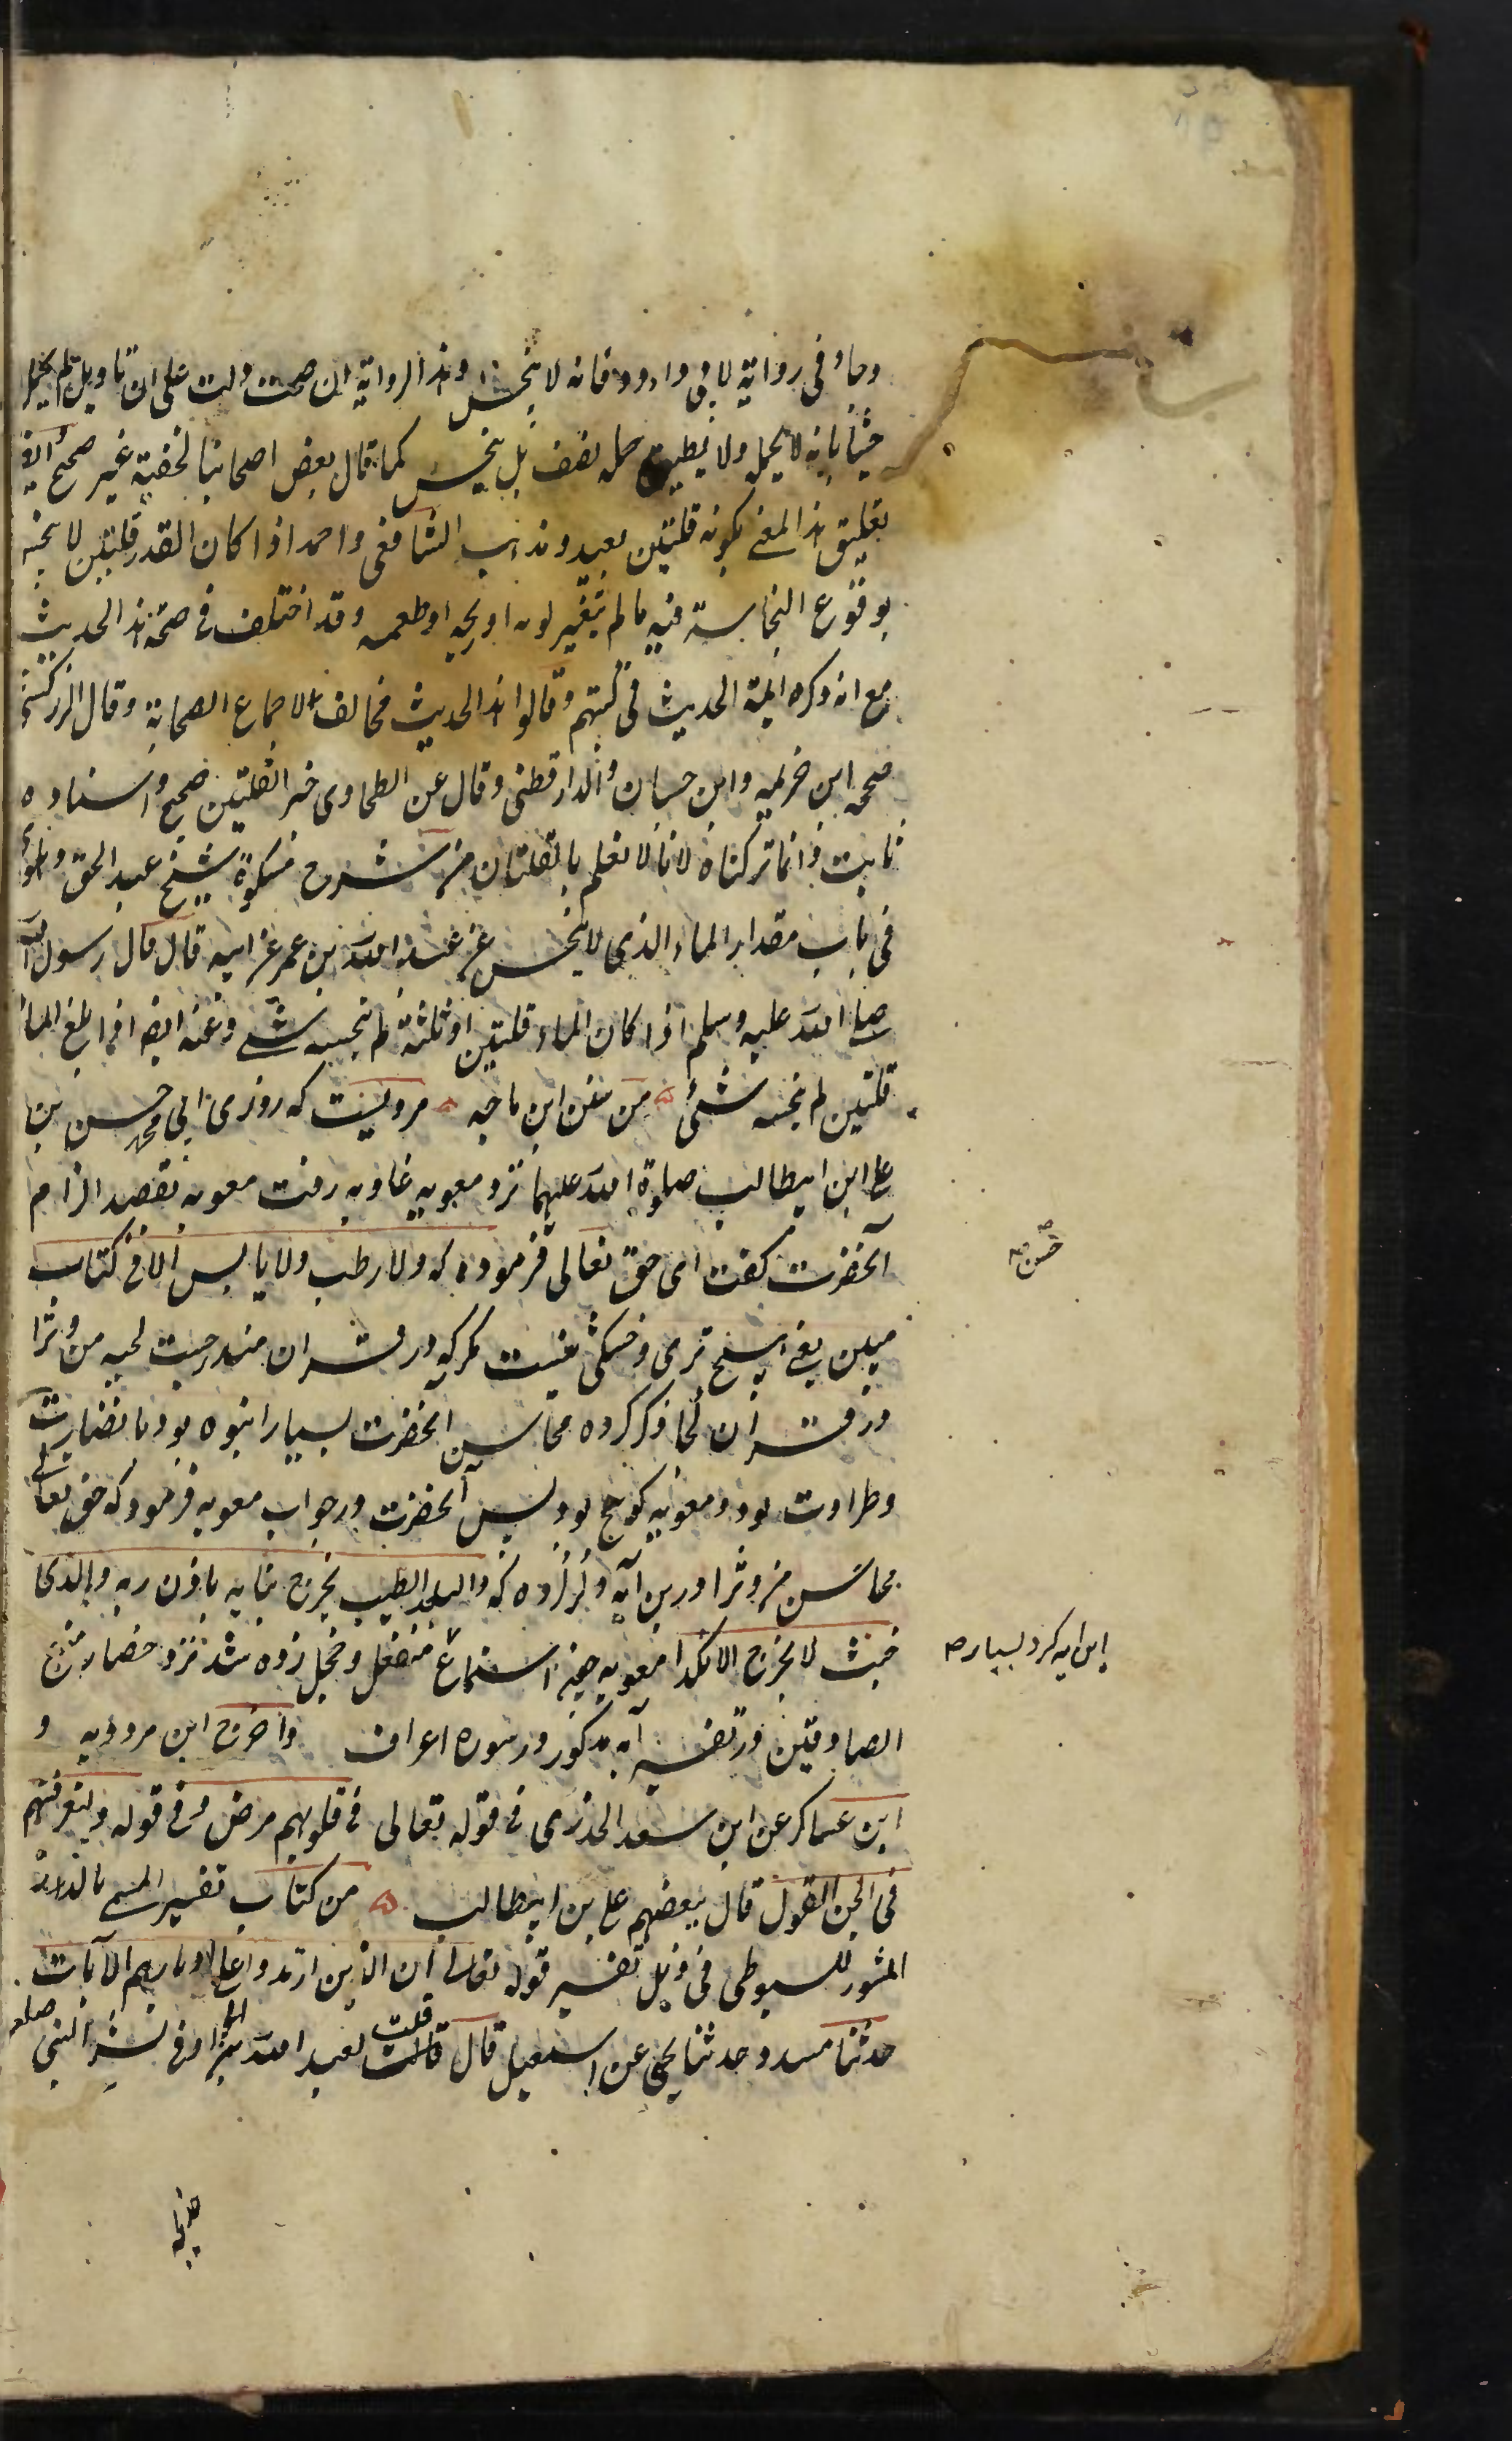 وجاء فی روایة لابی داود فانه لا ینجس وهذا الروایة ان صحت دلت علی ان تاویل لم یحمل
خبثا بانه لا یحمل ولا یطیق حمله لضعف بل ینجس کما قال بعض اصحابنا الحنفیة غیر صحیح
تعلیق هذا المعنی بکونه قلتین بعید ومذهب الشافعی واحمد اذا کان القدر قلتین لا ینجس
بوقوع النجاسة فیه ما لم یتغیر لونه او ریحه او طعمه وقد اختلف فی صحة هذا الحدیث
مع انه ذکره ائمة الحدیث فی کتبهم وقالوا هذا الحدیث مخالف لاجماع الصحابة وقال الزرکشی
صححه ابن خزیمه وابن حبان والدارقطنی وقال عن الطحاوی خبر القلتین صحیح واسناده
ثابت وانما ترکناه لانا لا نعلم بالقلتان من شرح مشکوة شیخ عبد الحق دهلوی
فی باب مقدار الماء الذی لا ینجس عن عبد الله بن عمر عن ابیه قال قال رسول الله
صلی الله علیه وسلم اذا کان الماء قلتین او ثلثة لم ینجسه شئ وعنه ایضا اذا بلغ الماء
قلتین لم ینجسه شئ من سنن ابن ماجه مرویست که روزی ابی محمد حسن بن
علی ابن ابیطالب صلوة الله علیهما نزد معویه غاویه رفت معویه بقصد الزام
آنحضرت گفت ای حق تعالی فرموده که ولا رطب ولا یابس الا فی کتاب
مبین یعنی هیچ تری وخشکی نیست مگر که در قران مندرجست لحیه من وترا
در قران کجا ذکر کرده محاسن آنحضرت بسیار انبوه بود با نضارت
وطراوت بود ومعویه کوسج بود پس آنحضرت در جواب معویه فرمود که حق تعالی
محاسن من وترا درین آیه ذکر کرده که والبلد الطیب یخرج نباته باذن ربه والذی
خبث لا یخرج الا نکدا معویه حین استماع منفعل وخجل زده شد نزد حضار
الصادقین در تفسیر آیه مذکور در سوره اعراف واخرج ابن مردویه و
ابن عساکر عن ابن سعد الخدری فی قوله تعالی فی قلوبهم مرض وفی قوله ولتعرفنهم
فی لحن القول قال ببغضهم علی بن ابیطالب من کتاب تفسیر المسمی بالدر
المنثور للسیوطی فی ذیل تفسیر قوله تعالی ان الذین ارتدوا علی ادبارهم الآیات
حدثنا مسدد حدثنا یحیی عن اسمعیل قال قلت لعبد الله بشر النبی صلعم
حسن صح